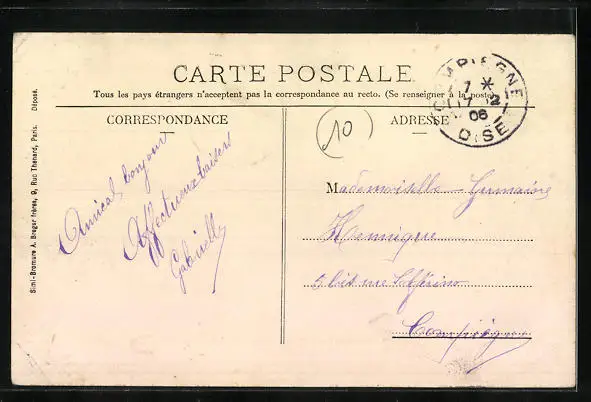 CARTE POSTALE
Tous les pays étrangers n'acceptent pas la correspondance au recto. (Se renseigner à la poste)
COMPIÈGNE
7 *
17 12
06
OISE
CORRESPONDANCE
ADRESSE
10
Amical bonjour
Affectueux baisers
Gabrielle
Mademoiselle Germaine
Hennique
5 bis rue
Compiègne
Simi-Bromure A. Breger frères, 9, Rue Thenard, Paris. Déposé.